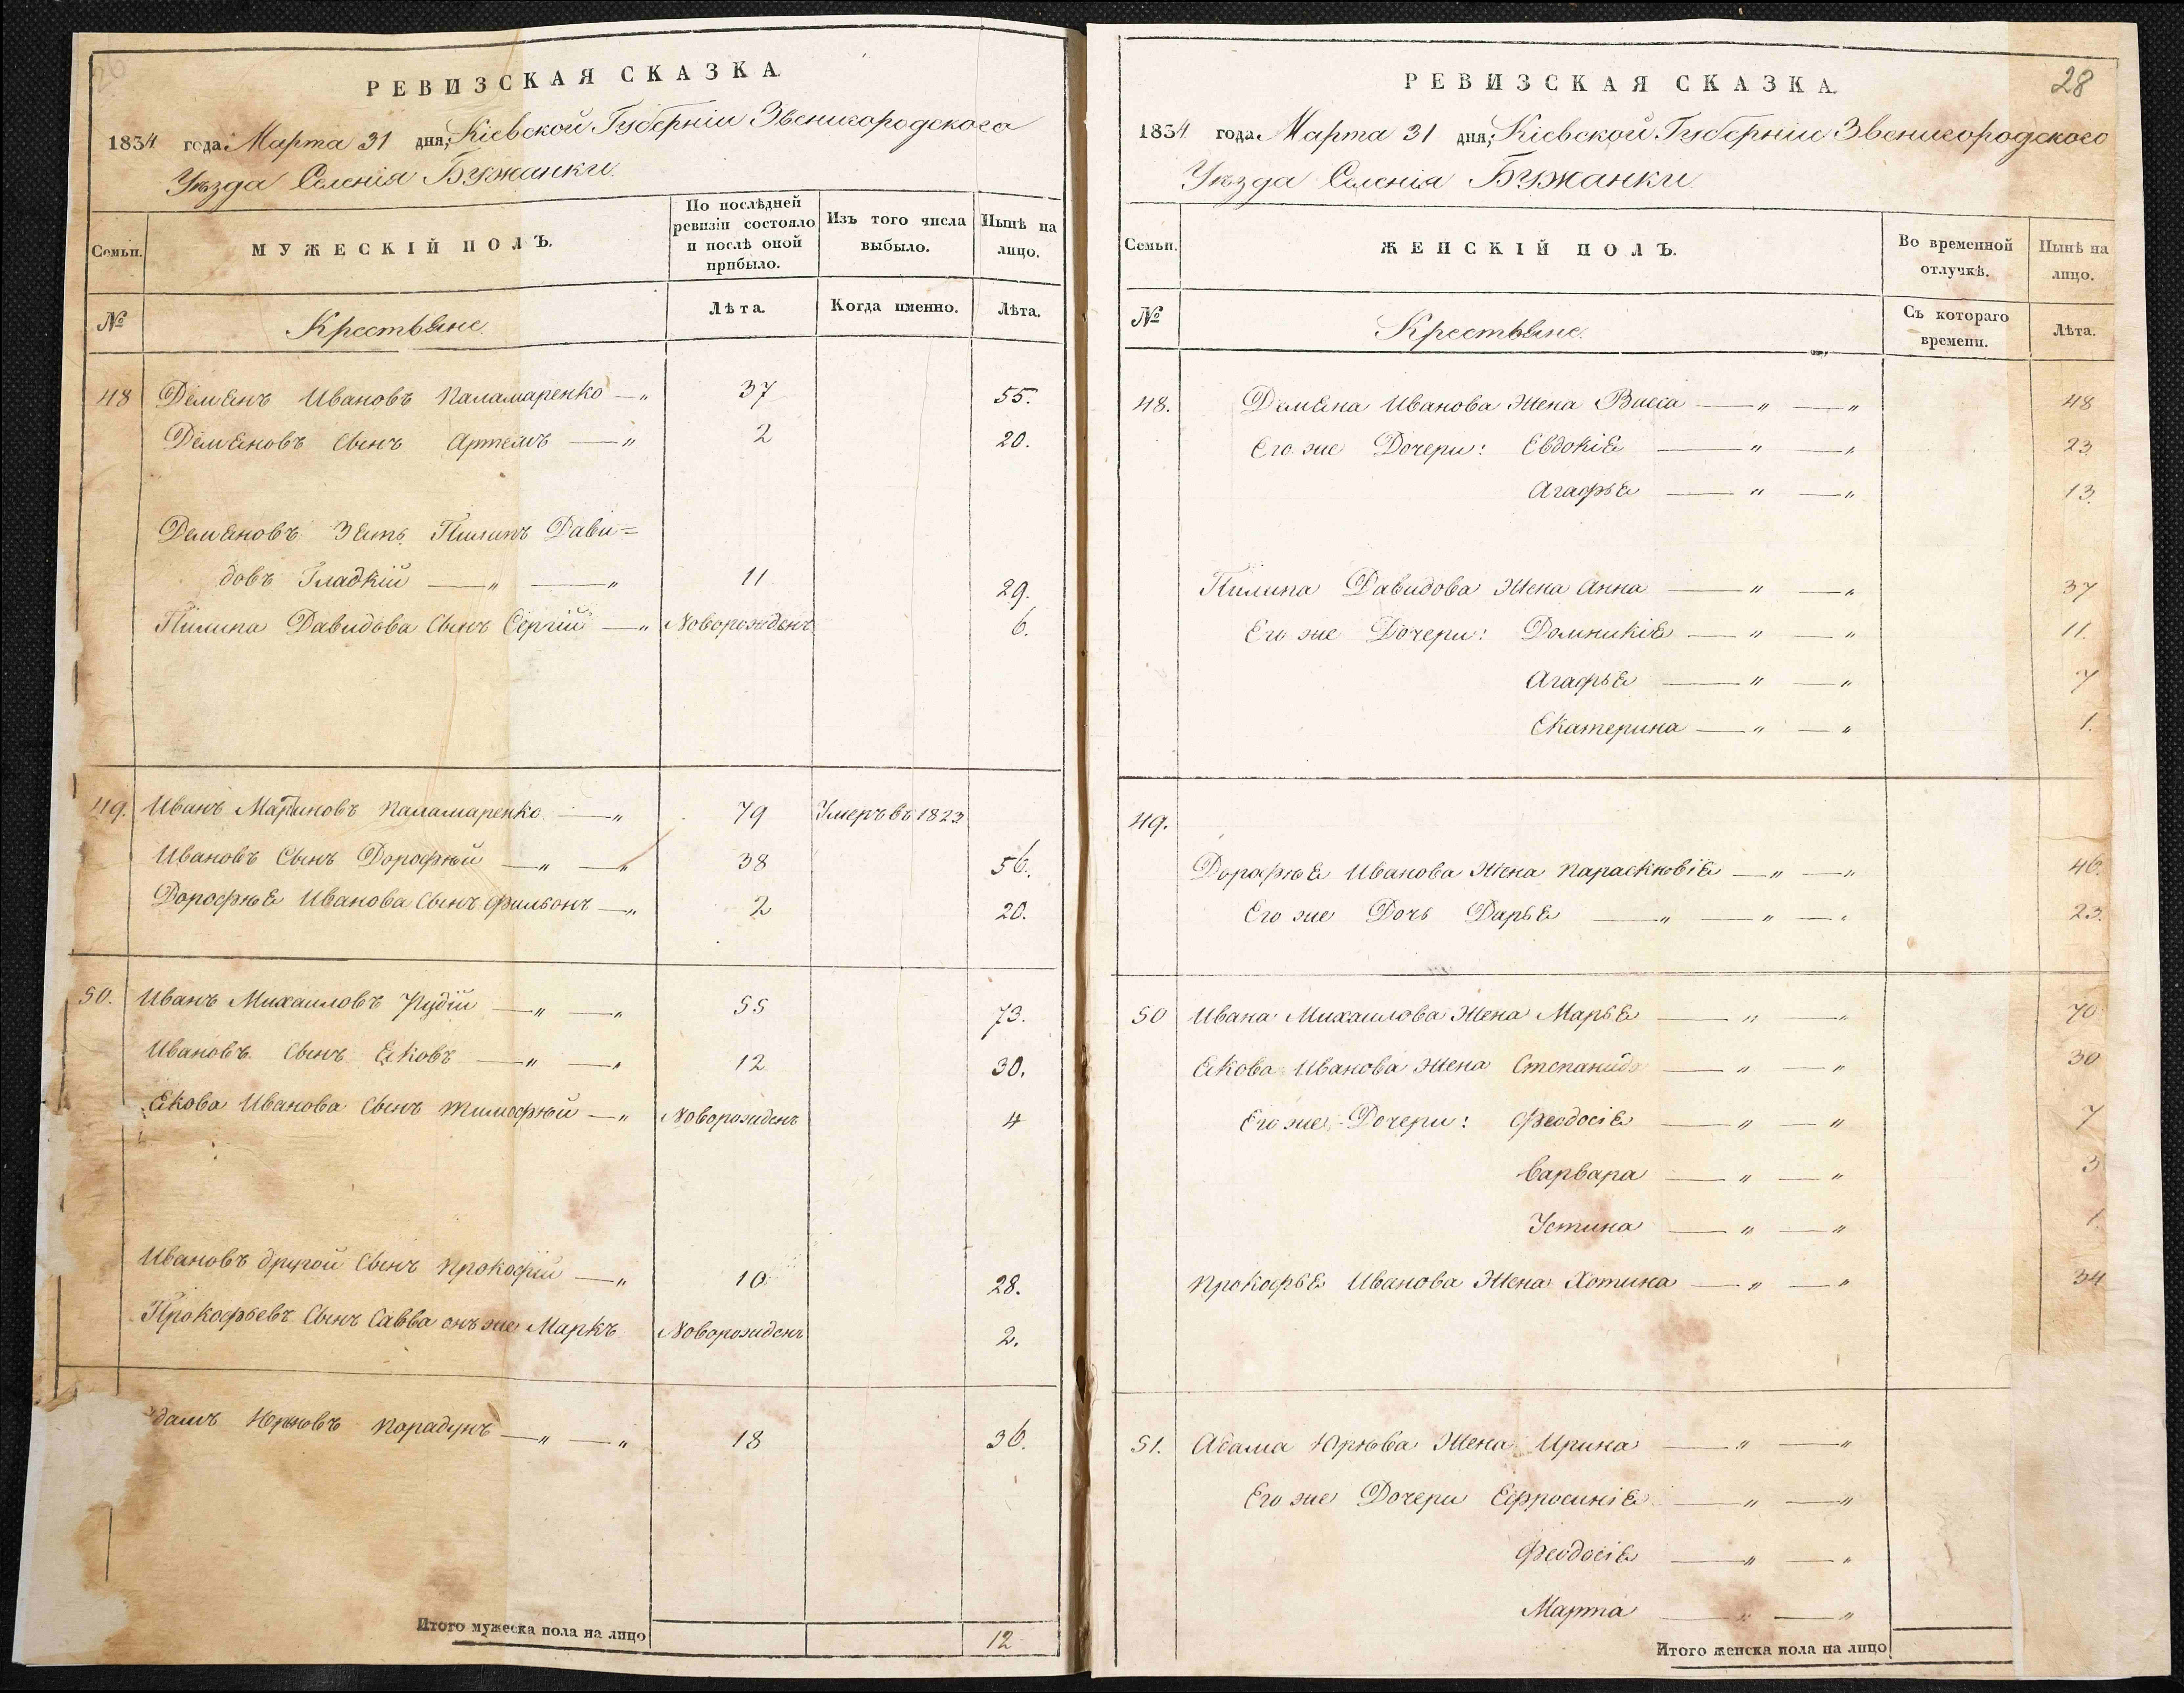 РЕВИЗСКАЯ СКАЗКА
1834 года Марта 31 дня, Кіевской Губерніи Звенигородскаго
Уѣзда Селенія Бужанки.
Семьи.
МУЖЕСКІЙ ПОЛЪ.
По послѣдней ревизіи состояло и послѣ оной прибыло.
Изъ того числа выбыло.
Нынѣ на лицо.
№
Крестьяне.
Лѣта.
Когда именно.
Лѣта.
48 Демянъ Ивановъ Паламаренко — „ 37 55.
Демяновъ Сынъ Артемъ — „ 2 20.
Демяновъ Зять Пилипъ Дави=
довъ Гладкій — „ — „ 11 29.
Пилипа Давидова Сынъ Сергій — „ Новорожденъ 6.
49. Иванъ Мартиновъ Паламаренко — „ 79 Умеръ въ 1823
Ивановъ Сынъ Дорофѣй — „ — „ 38 56.
Дорофѣя Иванова Сынъ Фильонъ — „ 2 20.
50. Иванъ Михаиловъ Рудій — „ — „ 55 73.
Ивановъ Сынъ Яковъ — „ — „ 12 30.
Якова Иванова Сынъ Тимофѣй — „ Новорожденъ 4
Ивановъ другой Сынъ Прокофій — „ 10 28.
Прокофьевъ Сынъ Савва онъ же Маркъ Новорожденъ 2.
дамъ Юрьовъ Порадунъ — „ — „ 18 36.
Итого мужеска пола на лицо 12
28
РЕВИЗСКАЯ СКАЗКА.
1834 года Марта 31 дня, Кіевской Губерніи Звенигородского
Уѣзда Селенія Бужанки.
Семьи.
ЖЕНСКІЙ ПОЛЪ.
Во временной отлучкѣ.
Нынѣ на лицо.
№
Крестьяне.
Съ котораго времени.
Лѣта.
48. Демяна Иванова Жена Васса — „ — „ 48
Его же Дочери: Евдокія — „ — „ 23
Агафья — „ — „ 13.
Пилипа Давидова Жена Анна — „ — „ 37
Его же Дочери: Домникія — „ — „ 11.
Агафья — „ — „ 7
Екатерина — „ — „ 1.
49.
Дорафѣя Иванова Жена Параскювія — „ — „ 46.
Его же Дочь Дарья — „ — „ — „ 23.
50 Ивана Михаилова Жена Марья — „ — „ 70
Якова Иванова Жена Степанида — „ — „ 30
Его же Дочери: Феодосія — „ — „ 7
Варвара — „ — „ 3
Устина — „ — „ 1.
Прокофья Иванова Жена Хотина — „ — „ 34
51. Адама Юрьева Жена Ирина — „ — „
Его же Дочери Ефросинія — „ — „
Феодосія — „ — „
Марта — „ — „
Итого женска пола на лицо